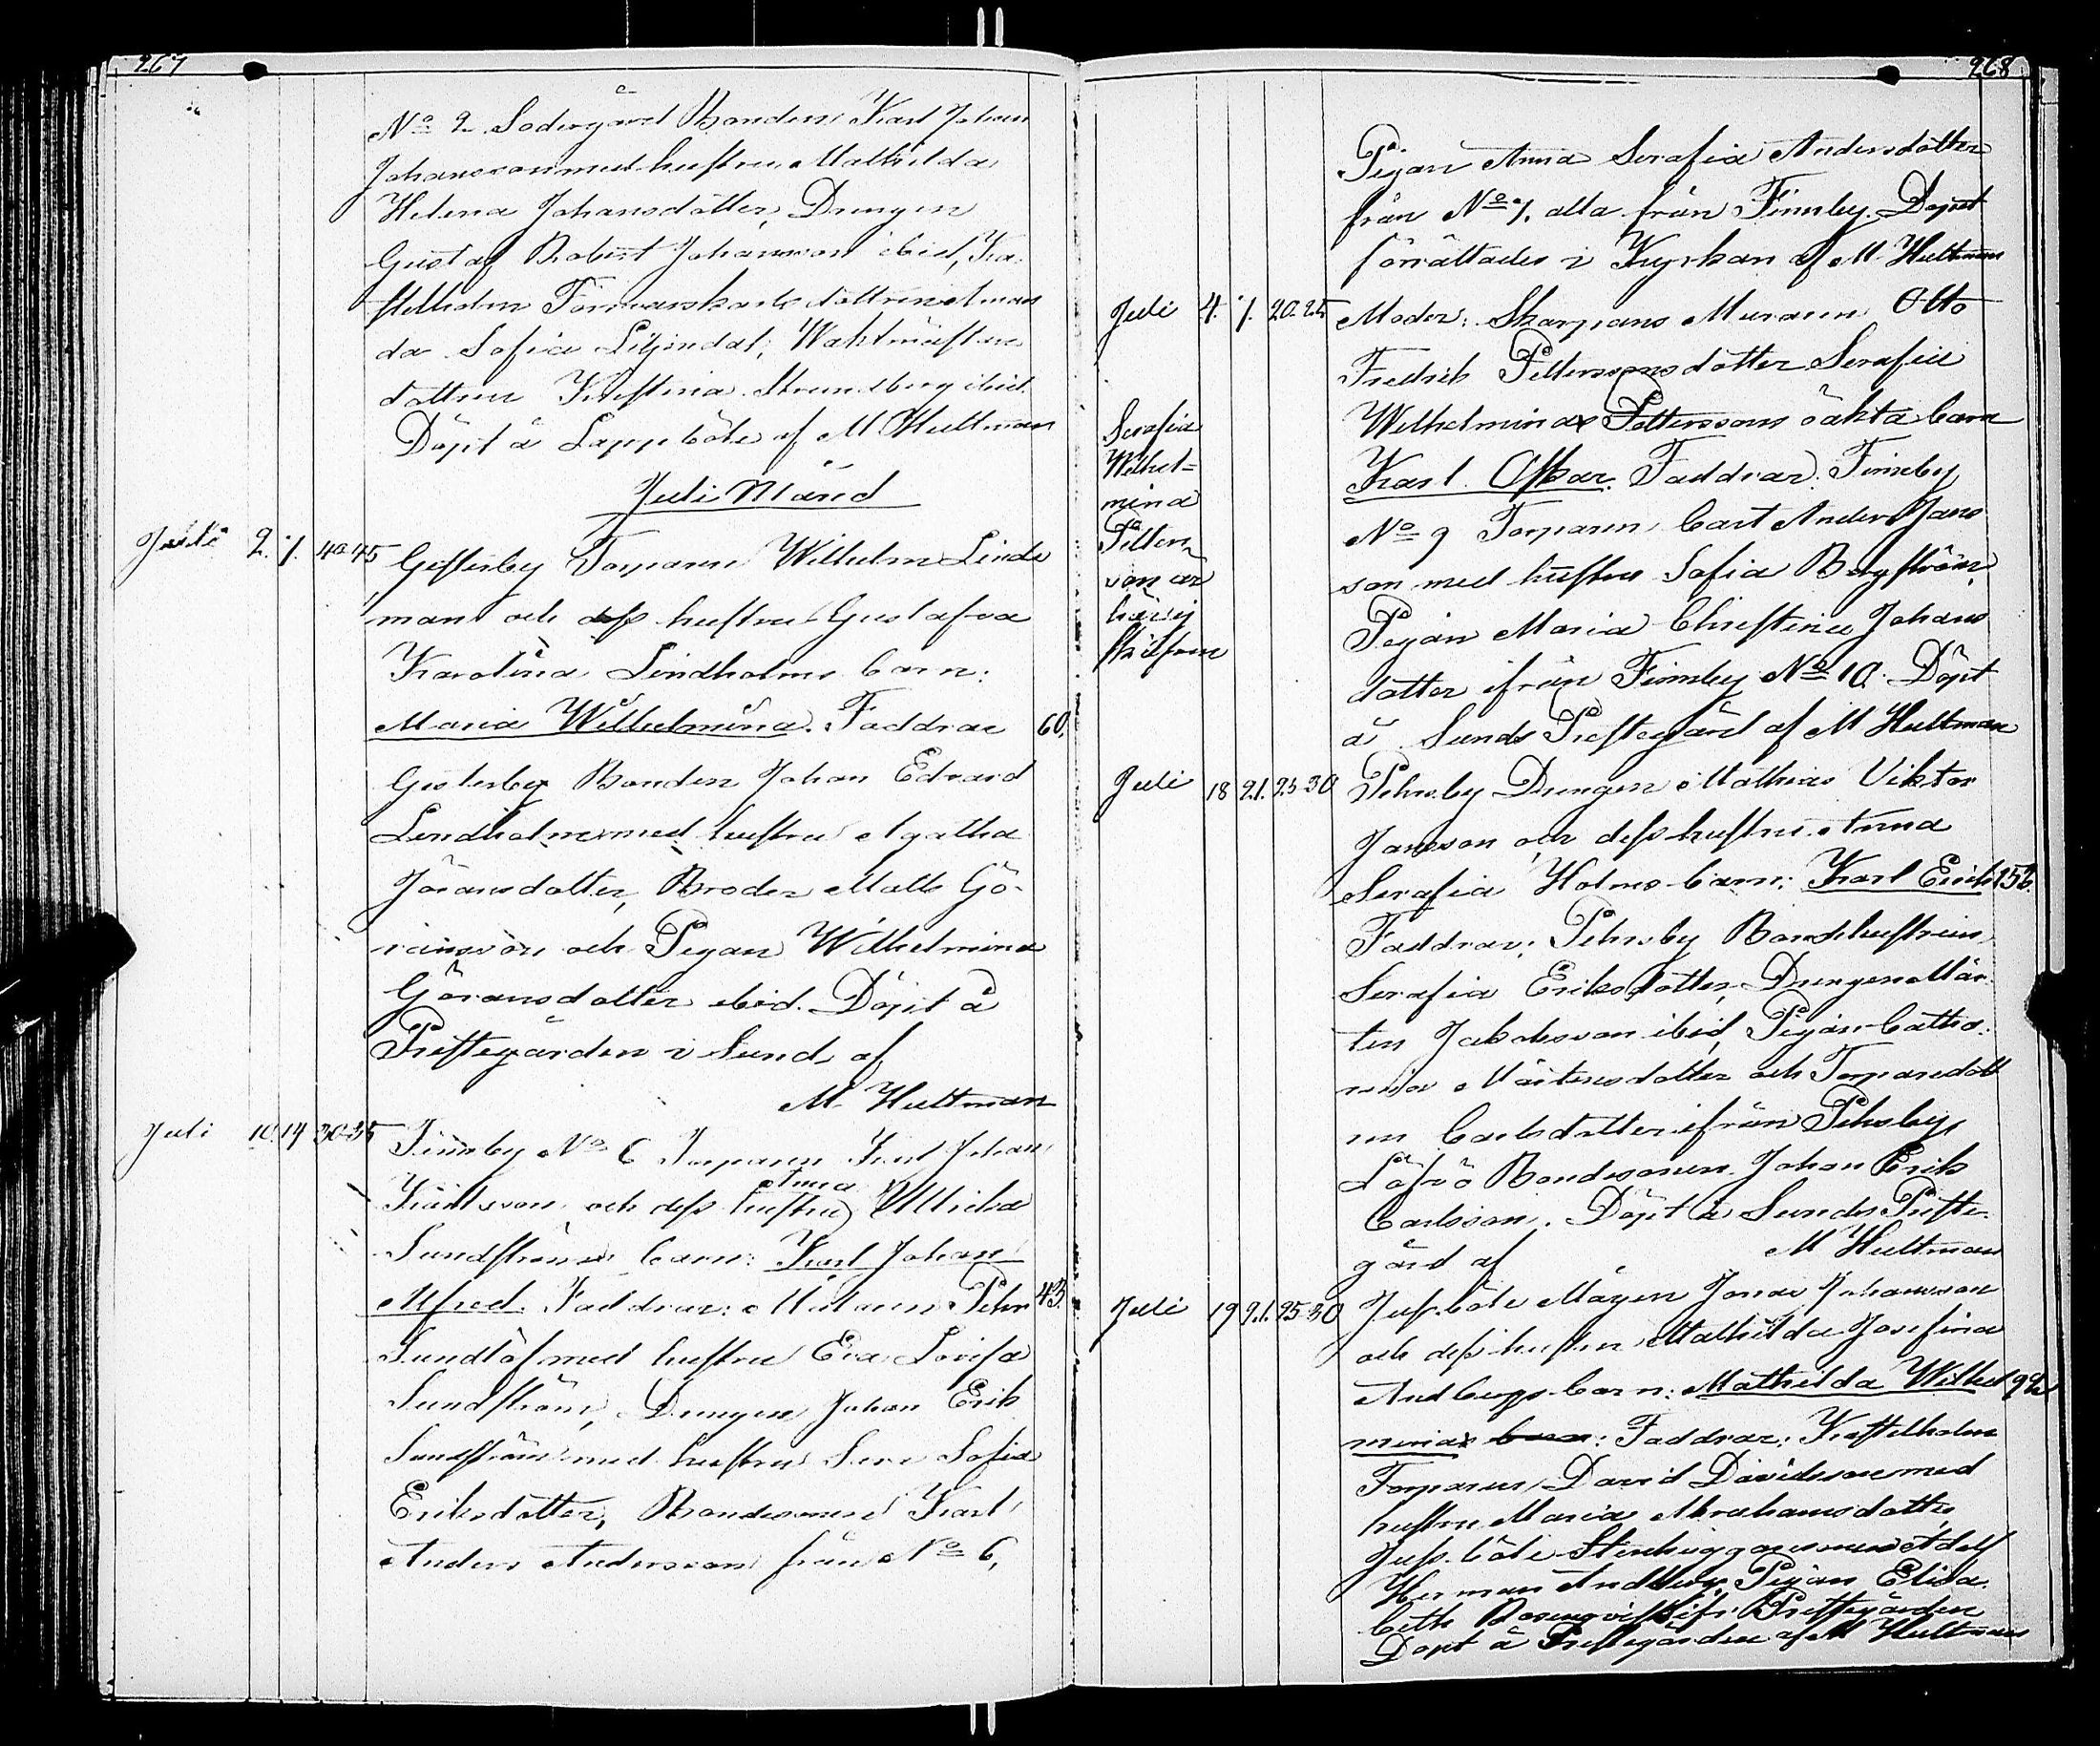 267
No 2 Södergård Bonden Karl Johan
Johansson med hustru Mathilda
Helena Johansdotter, Drengen
Gustaf Robert Johansson ibid, Ka-
stelholm dottren Aman
da Sofia Liljendal, Waktmästare
dottren Kristina Strandberg ibid.
Döpt å Lappböle af M Hultman
Juli Månad
Juli 2. 7. 40-45 Gesterby Torparen Wilhelm Lind
man och dess hustru Gustafva
Karolina Lindholms barn:
Maria Wilhelmina. Faddrar 60.
Gesterby Bonden Johan Edvard
Lindholm med hustru Agatha
Jöransdotter, Broder Matts Gö-
ransson och Pigan Wilhelmina
Göransdotter ibid. Döpt å
Prestegården i Sund af
M. Hultman
Juli 10 14 30-35 Finnby No 6 Torparen Karl Johan
Karlsson och dess hustru Anna Ulrika
Sundströms barn: Karl Johan
Alfred. Faddrar: Målaren Pehr 43.
Sundlöf med hustru Eva Lovisa
Sundström, Drengen Johan Erik
Sundström med hustru Sofia
Eriksdotter, Bondesonen Karl
Anders Andersson från No 6,
268
Pigan Anna Serafia Andersdotter
från No 7. alla från Finnby. Döpet
förrättades i Kyrkan af M. Hultman
Juli 4. 7. 20-25 Moder: Skarpans Muraren Otto
Fredrik Petterssons dotter Serafia
Wilhelmina Petterssons oäkta barn
Karl Oskar. Faddrar: Finnby
No 9 Torparen Carl Anders Jans
son med hustru Sofia Bergström,
Pigan Maria Christina Johans
dotter ifrån Finnby No 10. Döpt
å Sunds Prestegård af M Hultman
Serafia
Wilhel-
mina
Petters-
son är
här ej
skrifven
Juli 18 21. 25-30 Pehrsby Drengen Mathias Viktor
Jansson och dess hustru Anna
Serafia Holms barn: Karl Erik 152.
Faddrar: Pehrsby Bondehustrun
Serafia Eriksdotter, Drengen Mår-
ten Jakobsson ibid, Pigan Catha-
rina Mårtensdotter och Torparedott
ren Carlsdotter ifrån Pehrsby,
Löfö Bondesonen Johan Erik
Carlsson. Döpt å Sunds Preste-
gård af M Hultman
Juli 19 21. 25-30 Jussböle Mågen Jonas Johansson
och dess hustru Mathilda Josefina
Andbergs barn: Mathilda Wilhel 92
mina barn: Faddrar: Kastelholm
Torparen David Davidsson med
hustru Maria Abrahamsdotter,
Jussböle Stenhuggaresonen Adolf
Herman Andberg, Pigan Elisa-
beth Rosenqvist ifr. Prestegården
Döpt å Prestegården af M Hultman